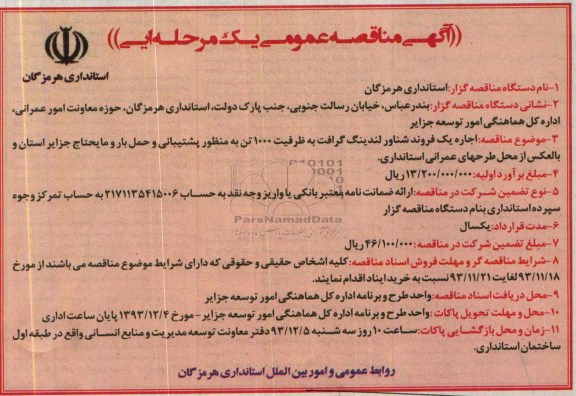 ((آگهی مناقصه عمومی یک مرحله‌ایی))
استانداری هرمزگان
۱-نام دستگاه مناقصه گزار:استانداری هرمزگان
۲-نشانی دستگاه مناقصه گزار:بندرعباس، خیابان رسالت جنوبی، جنب پارک دولت، استانداری هرمزگان، حوزه معاونت امور عمرانی،
اداره کل هماهنگی امور توسعه جزایر
۳-موضوع مناقصه:اجاره یک فروند شناور لندینگ گرافت به ظرفیت ۱۰۰۰ تن به منظور پشتیبانی و حمل بار و مایحتاج جزایر استان و
بالعکس از محل طرحهای عمرانی استانداری.
۴-مبلغ برآورد اولیه:۱۳/۲۰۰/۰۰۰/۰۰۰ ریال
۵-نوع تضمین شرکت در مناقصه:ارائه ضمانت نامه معتبر بانکی یا واریز وجه نقد به حساب ۲۱۷۱۱۳۵۴۱۵۰۰۶ به حساب تمرکز وجوه
سپرده استانداری بنام دستگاه مناقصه گزار
ParsNamadData
۶-مدت قرارداد:یکسال
۷-مبلغ تضمین شرکت در مناقصه:۴۶/۱۰۰/۰۰۰ ریال
۸-شرایط مناقصه گر و مهلت فروش اسناد مناقصه:کلیه اشخاص حقیقی و حقوقی که دارای شرایط موضوع مناقصه می باشند از مورخ
۹۳/۱۱/۱۸ لغایت ۹۳/۱۱/۲۱ نسبت به خرید ایناد اقدام نمایند.
۹-محل دریافت اسناد مناقصه:واحد طرح و برنامه اداره کل هماهنگی امور توسعه جزایر
۱۰-محل و مهلت تحویل پاکات :واحد طرح و برنامه اداره کل هماهنگی امور توسعه جزایر - مورخ ۱۳۹۳/۱۲/۴ پایان ساعت اداری
۱۱-زمان و محل بازگشایی پاکات:ساعت ۱۰ روز سه شنبه ۹۳/۱۲/۵ دفتر معاونت توسعه مدیریت و منابع انسانی واقع در طبقه اول
ساختمان استانداری.
روابط عمومی و امور بین الملل استانداری هرمزگان